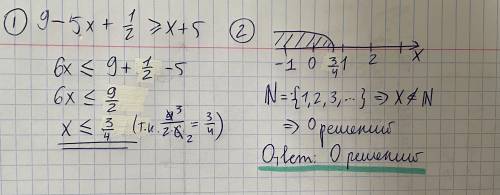 ① 9 - 5x + 1/2 ⩾ x + 5
6x ≤ 9 + 1/2 - 5
6x ≤ 9/2
x ≤ 3/4 (т.к. 9̶ ³/2·6̶ ₂ = 3/4)
②
-1 0 3/4 1 2 x
N = {1, 2, 3, ...} ⇒ x ∉ N
⇒ 0 решений
Ответ: 0 решений